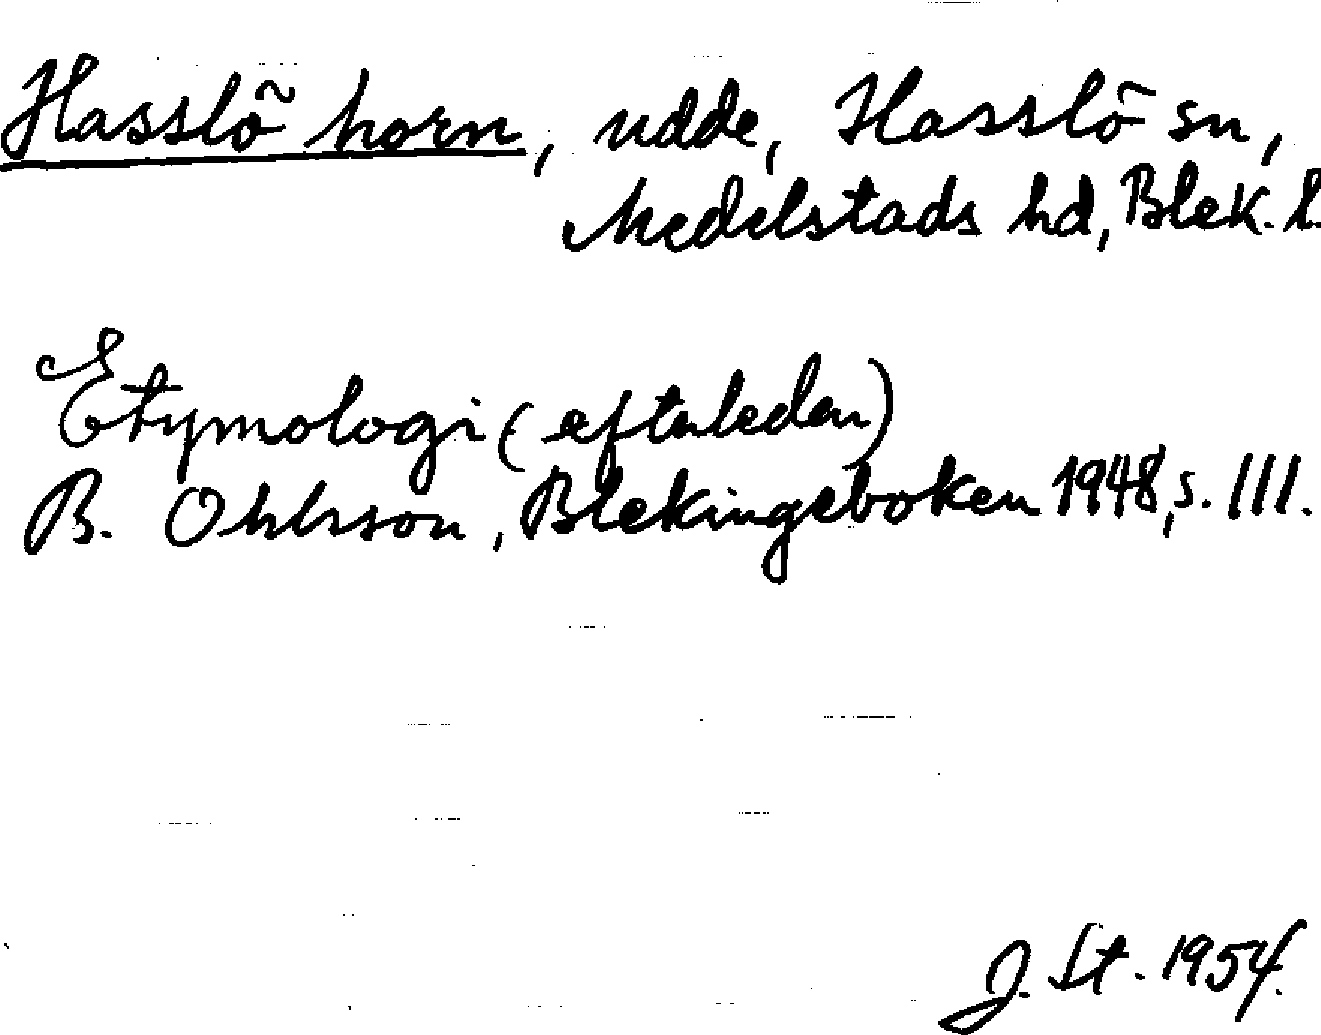 Hasslö horn, udde, Hasslö sn,
Medelstads hd, Blek. l.
Etymologi (efterleden)
B. Ohlsson, Blekingeboken 1948, s. 111.
J. St. 1954.